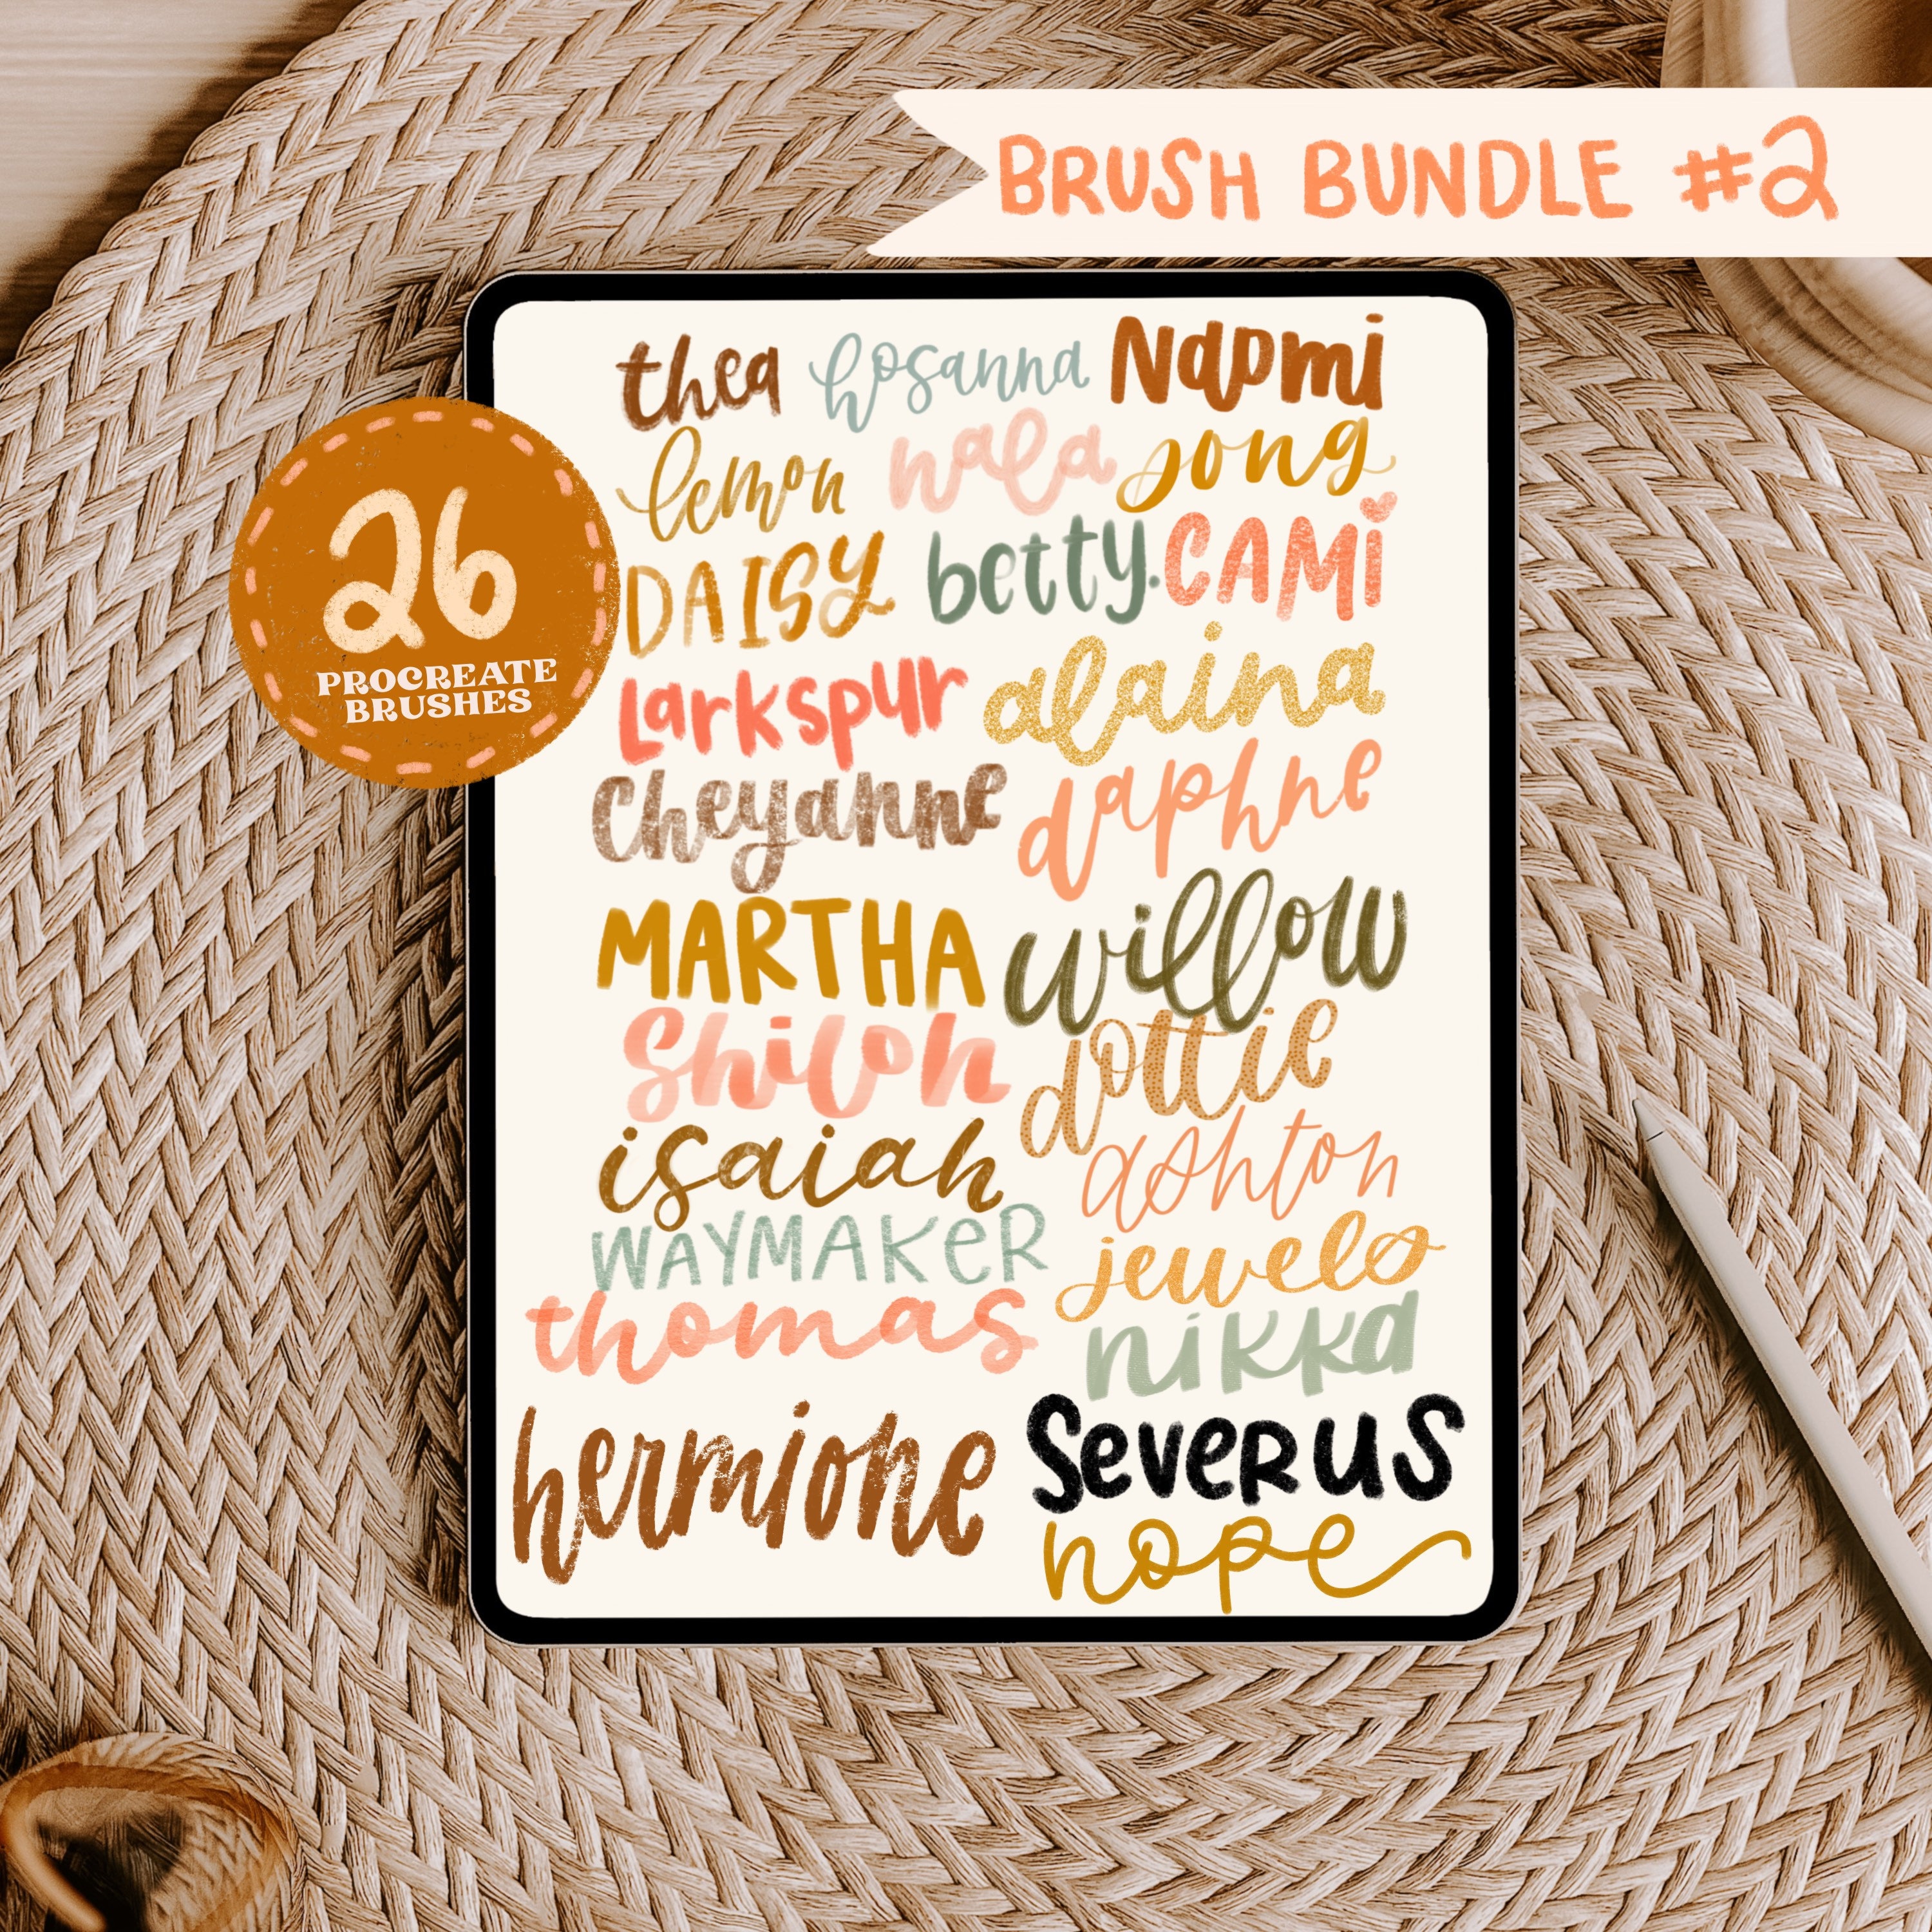 BRUSH BUNDLE #2
26
PROCREATE
BRUSHES
thea hosanna Naomi
lemon nala song
DAISY betty. CAMi
Larkspur alaina
Cheyanne daphne
MARTHA willow
Shiloh dottie
isaiah ashton
WAYMAKER jewels
thomas nikka
hermione Severus
hope